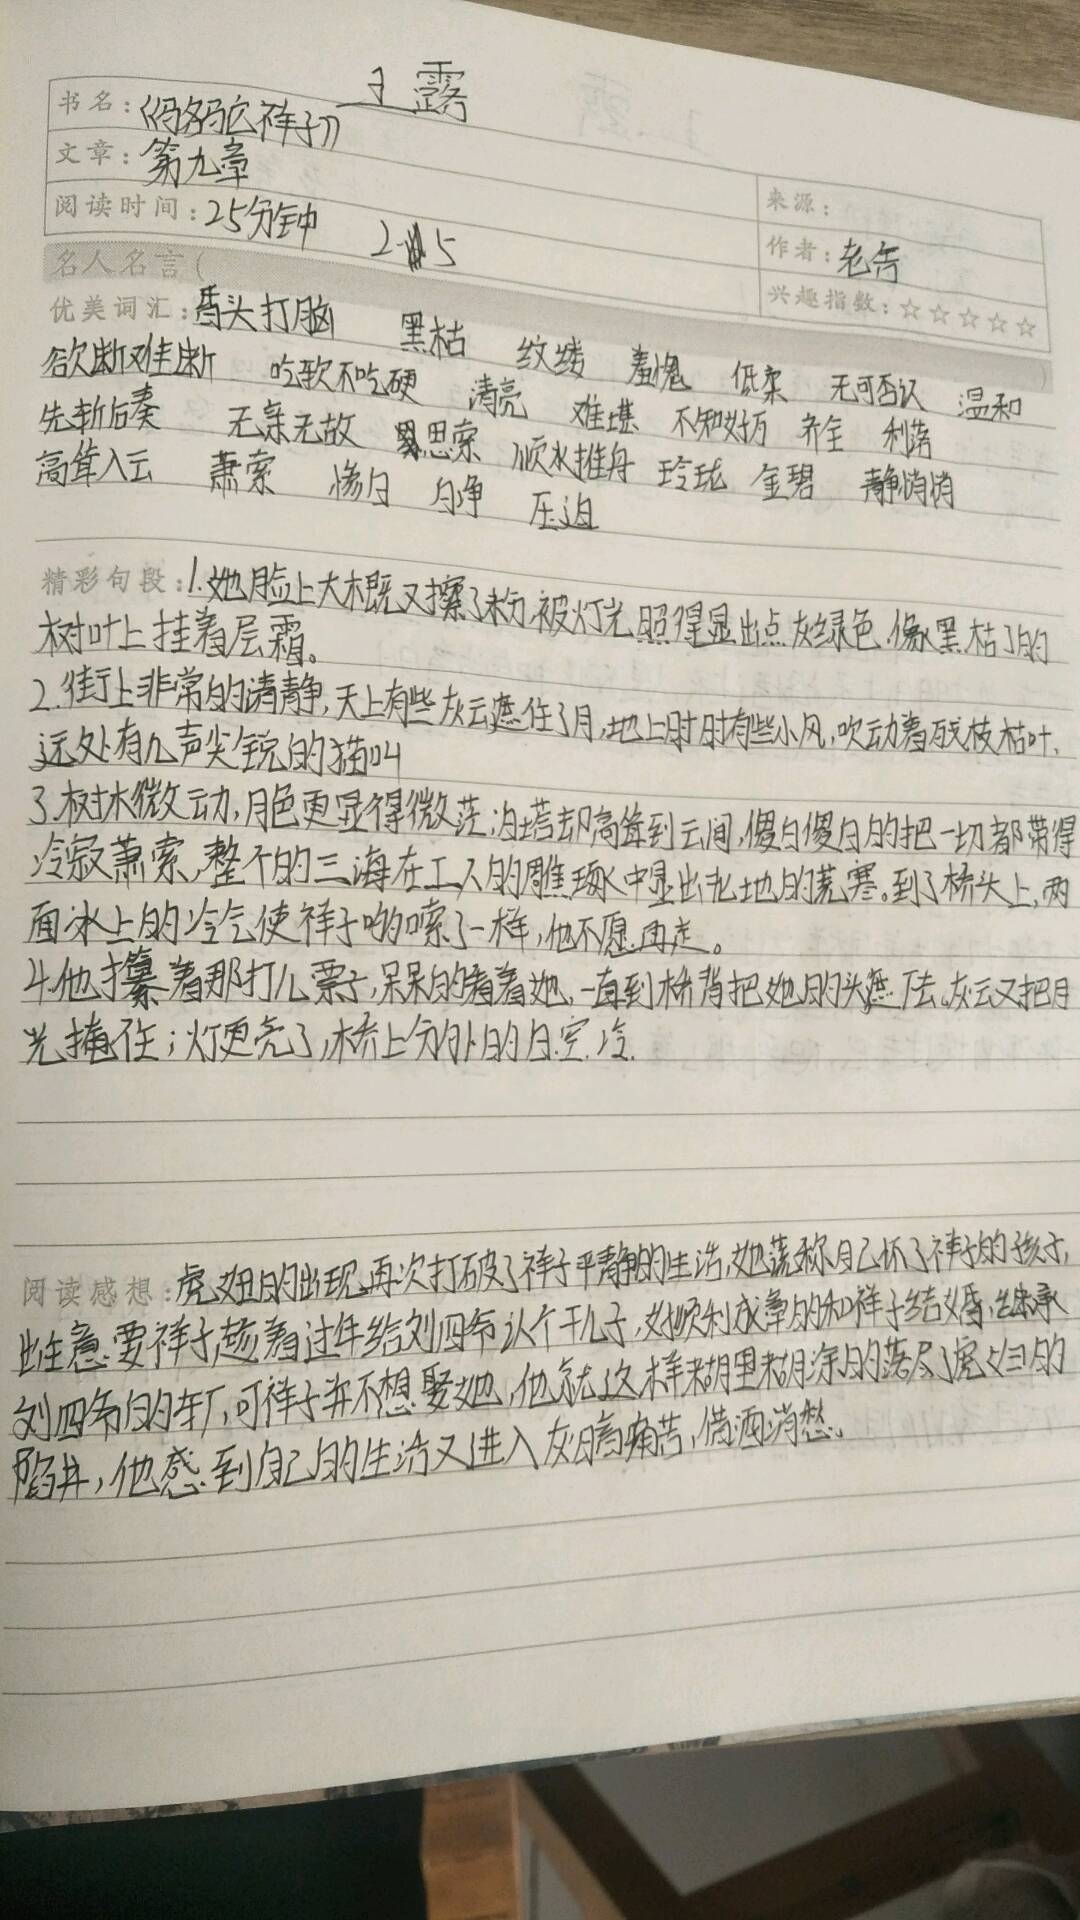 王露
书名：《骆驼祥子》
文章：第九章
来源：
阅读时间：25分钟 2 5
作者：老舍
名人名言（ ）
兴趣指数：☆☆☆☆☆
优美词汇：劈头打脑 黑枯 纹缕 羞愧 低柔 无可否认 温和
欲断难断 吃软不吃硬 清亮 难堪 不知好歹 齐全 利落
先斩后奏 无亲无故 思索 顺水推舟 玲珑 金碧 静悄悄
高耸入云 萧索 惨白 白净 压迫
精彩句段：1.她脸上大概又擦了粉，被灯光照得显出点灰绿色，像黑枯了的
树叶上挂着层霜。
2.街上非常的清静，天上有些灰云遮住了月，地上时时有些小风，吹动着残枝枯叶，
远处有几声尖锐的猫叫
3.树木微动，月色更显得微茫；白塔却高耸到云间，傻白傻白的把一切都带得
冷寂萧索，整个的三海在工人的雕琢中显出北地的荒寒。到了桥头上，两
面冰上的冷气使祥子哆嗦了一样，他不愿再走。
4.他攥着那打儿票子，呆呆的看着她，一直到桥背把她的头遮下去。灰云又把月
光掩住；灯更亮了，桥上分外的白，空，冷.
阅读感想：虎妞的出现，再次打破了祥子平静的生活，她谎称自己怀了祥子的孩子，
出主意要祥子趁着过年给刘四爷认个干儿子，好顺利成章的和祥子结婚，继承
刘四爷的的车厂，可祥子并不想娶她，他就这样糊里糊涂的落尽了虎妞的
陷井，他感到自己的生活又进入灰暗痛苦，借酒消愁。